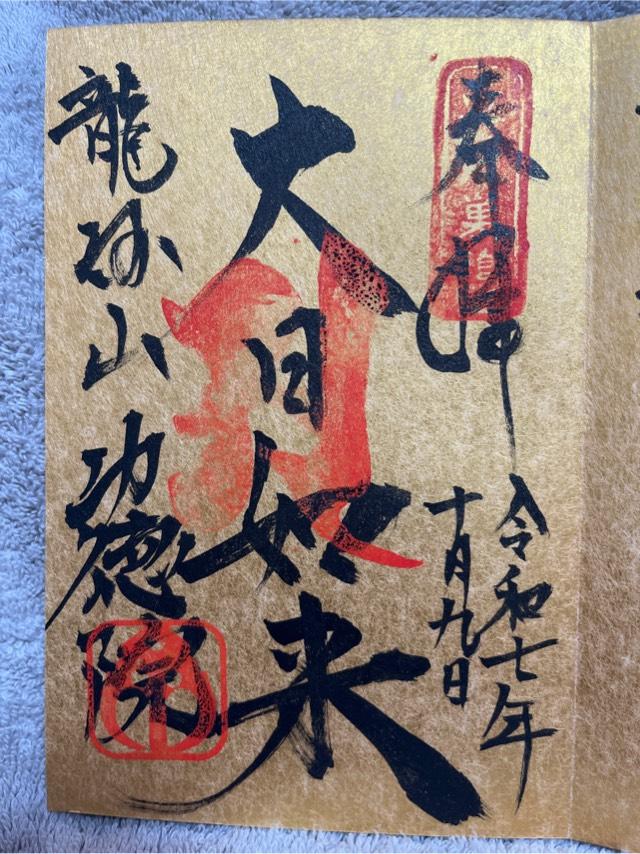 奉拝
令和七年
十月九日
大日如来
龍
山 功徳院